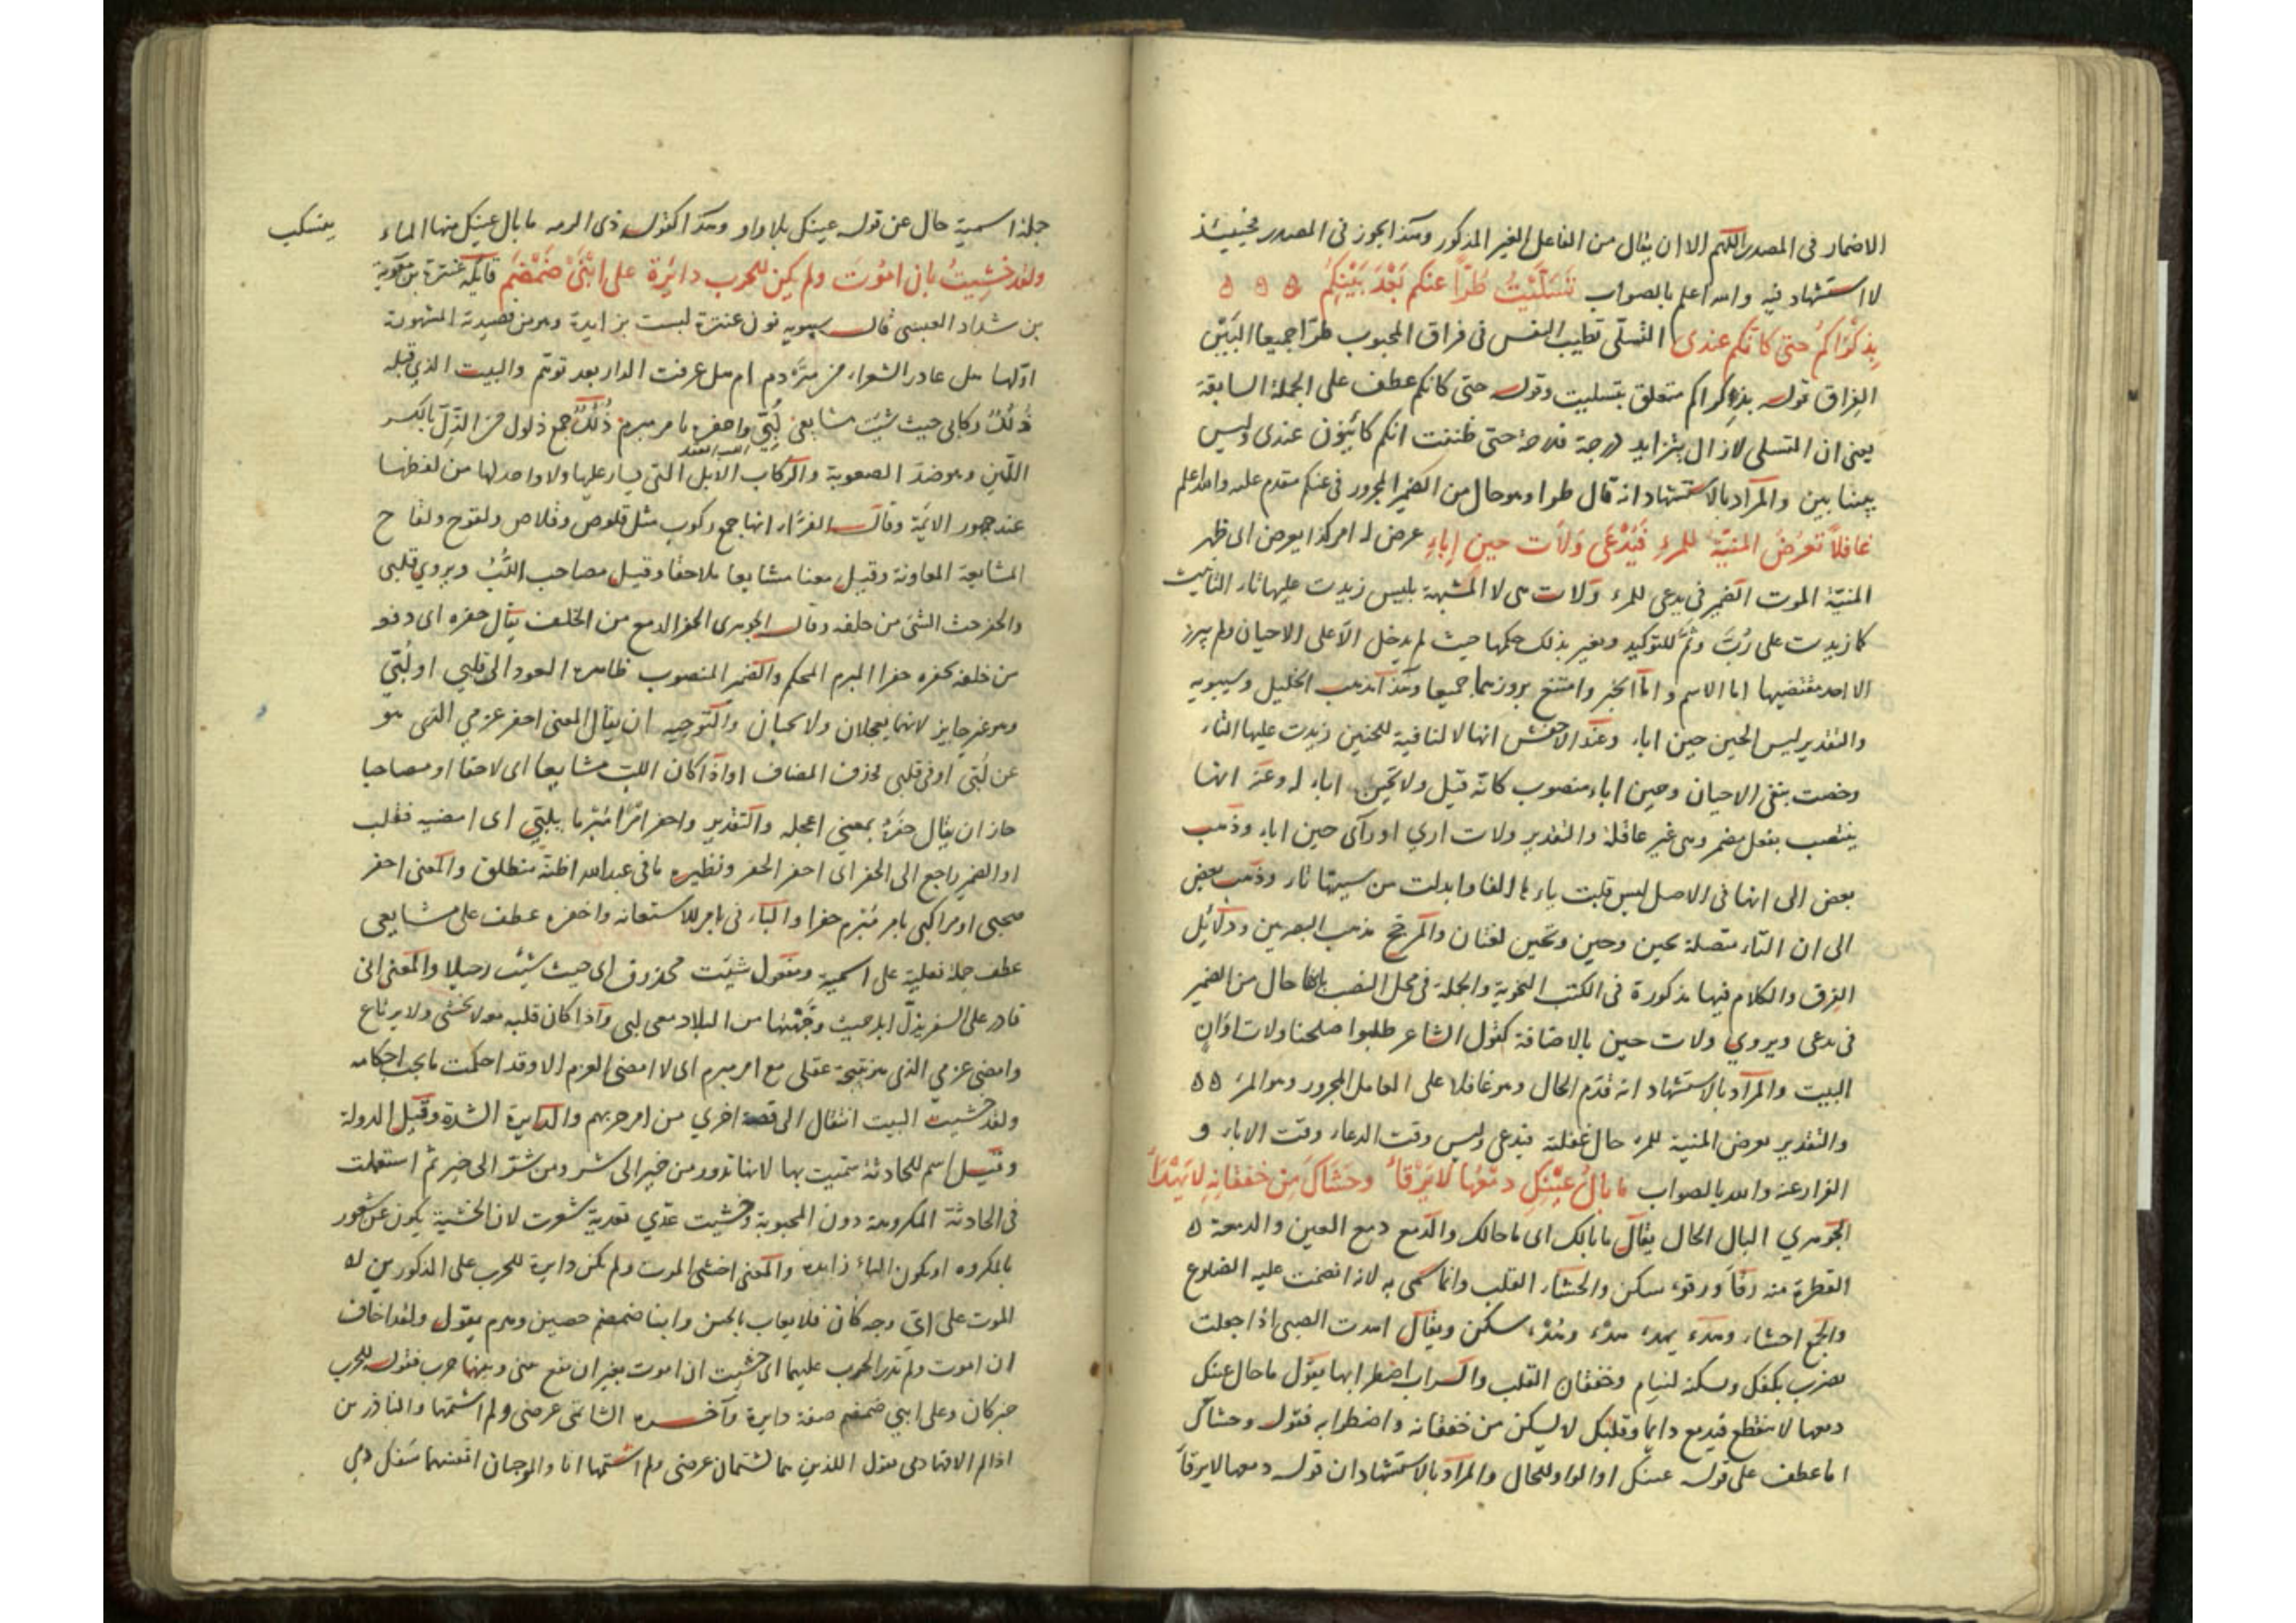 الاضمار فى المصدر اللهم الا ان يقال من الفاعل الغير المذكور وهذا يجوز فى المصدر فحينئذ
لا استشهاد فيه والله اعلم بالصواب تَسَلَّيْتُ طُرًّا عنكم بَعْدَ بَيْنِكُمْ ۵ ۵ ۵
بِذِكْرَاكُمُ حتى كانّكم عندى التسلّى تطييب النفس فى فراق المحبوب طرّا جميعا البَيْن
الفراق قوله بذكراكم متعلق بتسليت وقوله حتى كانكم عطف على الجملة السابقة
يعنى ان المتسلى لازال يتزايد درجة فدرجة حتى ظننت انكم كائنون عندى وليس
بيننا بين والمراد بالاستشهاد انه قال طرا وهو حال من الضمير المجرور فى عنكم متقدم عليه والله اعلم
غافلاً تعرُضُ المنيّة للمرءِ فَيُدْعَى وَلاَت حين إباءِ عرض له امر كذا يعرض اى ظهر
المنيّة الموت الضمير فى يدعى للمرء ولات هى لا المشبهة بليس زيدت عليها تاء التانيث
كما زيدت على رُبَّ وثُمَّ للتوكيد وتغير بذلك حكمها حيث لم يدخل الّا على الاحيان ولم يبرز
الا احد مقتضيها اما الاسم واما الخبر وامتنع بروزهما جميعا وهذا مذهب الخليل وسيبويه
والتقدير ليس الحين حين اباء وعند الاخفش انها لا النافية للجنس زيدت عليها التاء
وخصت بنفى الاحيان وحين اباء منصوب كانه قيل ولا حين اباء له وعنه انها
ينتصب بفعل مضمر وهى غير عاملة والتقدير ولات ارى او رآى حين اباء وذهب
بعض الى انها فى الاصل ليس قلبت ياء ها الفا وابدلت من سينها تاء وذهب بعض
الى ان التاء متصلة بحين وحين وتحين لغتان والمرجّح مذهب البصريين ودلائل
الفرق والكلام فيها مذكورة فى الكتب النحوية والجملة فى محل النصب بانها حال من الضمير
فى يدعى ويروي ولات حين بالاضافة كقول الشاعر طلبوا صلحنا ولات اوَانٍ
البيت والمراد بالاستشهاد انه قدّم الحال وهو غافلا على العامل المجرور وهو المرء ۵۵
والتقدير تعرض المنية للمرء حال غفلة فيدعى وليس وقت الدعاء وقت الاباء و
الفرار عنه والله بالصواب ما بالُ عيْنِكِ دمْعُها لا يَرْقأُ وحَشَاكَ مِن خفقانِهِ لا يَهْدَأُ
الجوهري البال الحال يقال ما بالك اى ما حالك والدمع دمع العين والدمعة ۵
القطرة منه رقأ ورقوء سكن والحشاء القلب وانما سمى به لانه انضمت عليه الضلوع
والجمع احشاء وهدء يهدء هدء وهُدْء سكن ويقال اهدت الصبى اذا جعلت
تضرب بكفك وتسكنه لينام وخفقان القلب والسراب اضطرابها يقول ما حال عينك
دمعها لا ينقطع فيدمع دايما وقلبك لا يسكن من خفقانه واضطرابه فقوله وحشاك
اما عطف على قوله عينك او الواو للحال والمراد بالاستشهاد ان قوله دمعها لا يرقأ
جملة اسمية حال عن قوله عينك بلا واو وهذا كقوله ذى الرمه ما بال عينك منها الماء
ينسكب
ولقد خشِيتُ بان اموُتَ ولم يكن للحرب دائِرة على ابْنَىْ ضَمْضَم قايله عنترة بن معوية
بن شداد العبسى قال سيبويه نون عنترة ليست بزايدة وهو من قصيدته المشهورة
اوّلها هل غادر الشعراء من متردم ام هل عرفت الدار بعد توهّم والبيت الذى قبله
ذُلُلٌ ركابى حيث شيت مشايعى لُبّي واحفزه بامر مبرم ذُلُلٌ جمع ذلول من الذِّل بالكسر
اللّين وهو ضد الصعوبة والركاب الابل التى يسار عليها ولا واحد لها من لفظها
عند جمهور الايمّة وقال الفرّاء انها جمع ركوب مثل قلوص وقلاص ولقوح ولقاح
المشايعة المعاونة وقيل معنا مشايعا ملاحقا وقيل مصاحب اللُّبُّ ويروي قلبى
والحفز حث الشئ من خلفه وقال الجوهرى الحفز الدفع من الخلف يقال حفزه اى دفعه
من خلفه يحفزه حفزا المبرم المحكم والضمير المنصوب ظاهره العود الى قلبي او لُبّي
وهو غير جايز لانهما يعجلان ولا يحبان والتوجيه ان يقال المعنى احفز عزمي الذى هو
عن لُبّى او فى قلبى فحذف المضاف او اذا كان اللبّ مشايعا اى لاحقا او مصاحبا
جاز ان يقال حفزه بمعني اعجله والتقدير واحفز امرًا مُبْرما بلُبّى اى امضيه فقلب
او الضمير راجع الى الحفز اى احفز الحفز ونظيره ما فى عبد الله اظنّه منطلق والمعنى احفز
صحبى او مراكبى بامر مُبْرم حفزا والباء فى بامر للاستعانه واحفزه عطف على مشايعى
عطف جملة فعلية على اسمية ومفعول شيت محذوف اى حيث شيت رحيلا والمعنى انى
قادر على السفر بذُلّ ابلى حيث وجّهتها من البلاد معى لبى واذا كان قلبه معه لا يخشى ولا يرتاع
وامضى عزمي الذى هو نتيجة عقلى مع امر مبرم اى لا امضى العزم الا وقد احكمت ما يجب احكامه
ولقد خشيت البيت انتقال الى قصة اخري من امر حربهم والدايرة الشدة وقيل الدولة
وقيل اسم للحادثة سميت بها لانها تدور من خير الى شر ومن شر الى خير ثم استعملت
فى الحادثة المكروهة دون المحبوبة وخشيت عدّي تعدية شعرت لان الخشية يكون عن شعور
بالمكروه او يكون الباء زايده والمعنى اخشى الموت ولم يكن دايرة للحرب على المذكورين لان
الموت على ايّ وجه كان فلا يعاب بالجبن وابنا ضمضم حصين وهرم يقول ولقد اخاف
ان اموت ولم تدر الحرب عليهما اى خشيت ان اموت بغير ان تقع بينى وبينها حرب فقوله للحرب
خبر كان وعلى ابني ضمضم صفة دايرة وآخره الشاتمى عرضى ولم اشتمها والناذرين
اذا لم القهما دمى يقول اللذين هما يشتمان عرضى ولم اشتمها انا والموجبان انفسهما سفك دمى